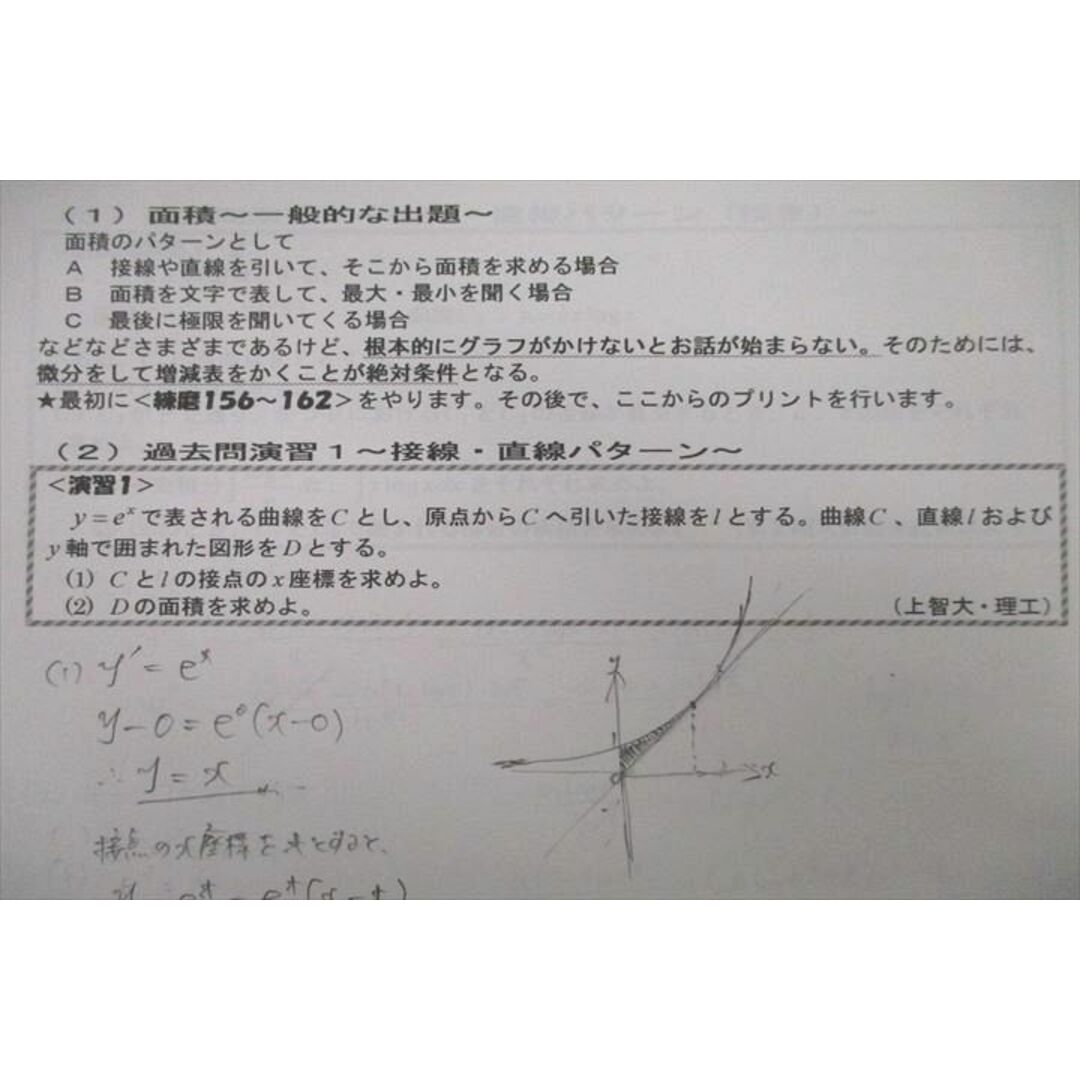 (1) 面積～一般的な出題～
面積のパターンとして
A 接線や直線を引いて、そこから面積を求める場合
B 面積を文字で表して、最大・最小を聞く場合
C 最後に極限を聞いてくる場合
などなどさまざまであるけど、根本的にグラフがかけないとお話が始まらない。そのためには、
微分をして増減表をかくことが絶対条件となる。
★最初に<練磨156～162>をやります。その後で、ここからのプリントを行います。
(2) 過去問演習1～接線・直線パターン～
<演習1>
y=eˣで表される曲線をCとし、原点からCへ引いた接線をlとする。曲線C、直線lおよび
y軸で囲まれた図形をDとする。
(1) Cとlの接点のx座標を求めよ。
(2) Dの面積を求めよ。 (上智大・理工)
(1) y′=eˣ
y-0=e⁰(x-0)
∴ y=x
接点のx座標をtとすると、
y
1
O
x